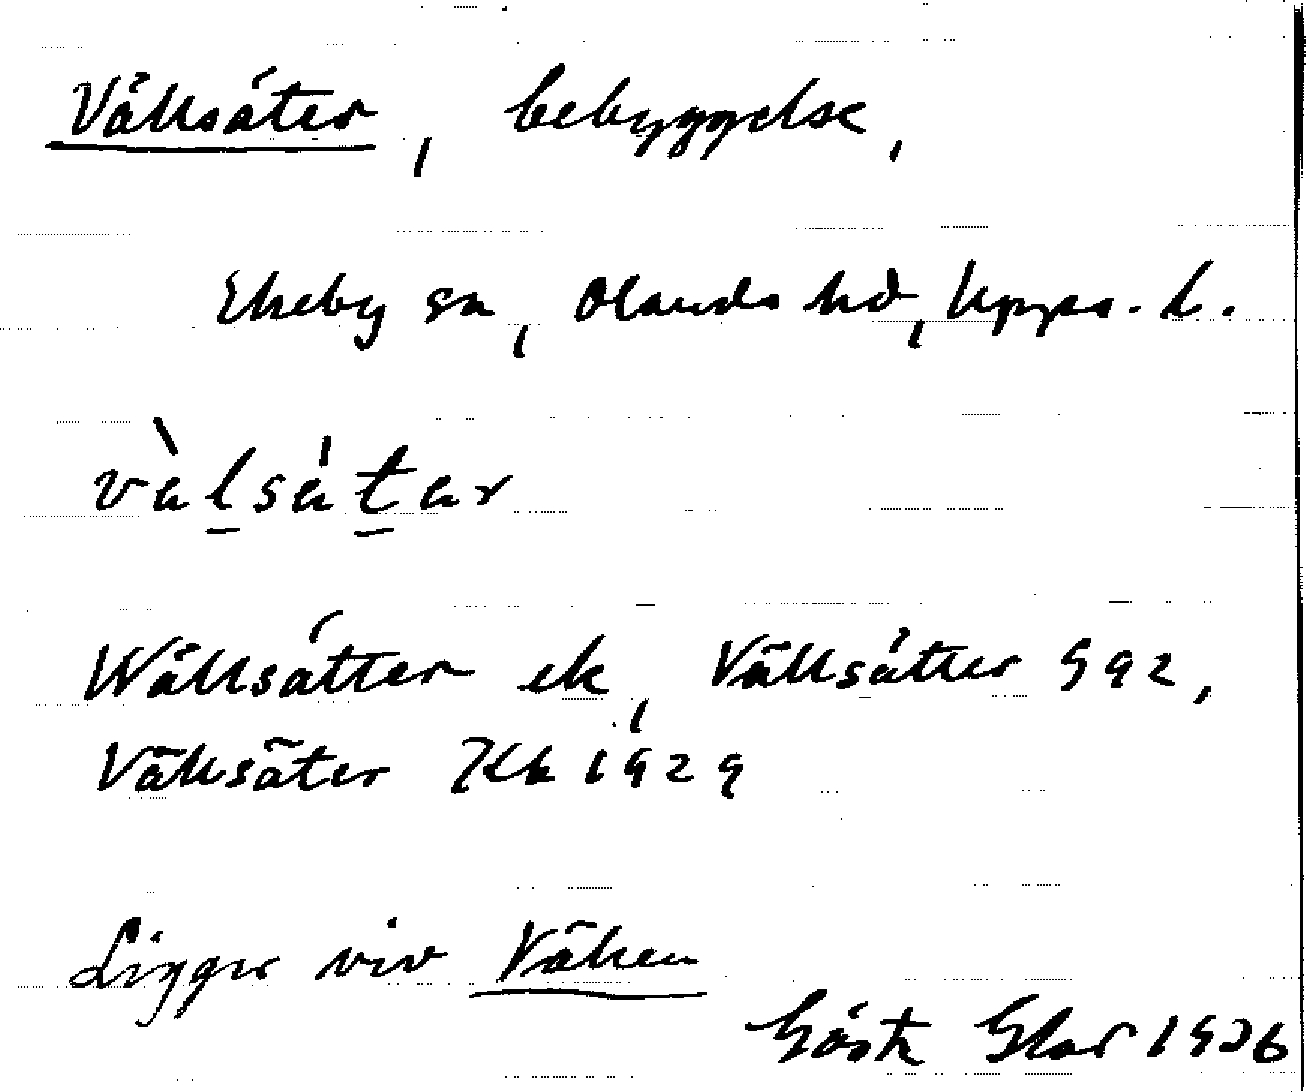 Vällsäter, bebyggelse,
Ekeby sn, Olands hd, Upps. l.
vàlsátar
Wällsätter ek, Vällsätter Gg 2,
Vällsäter Kk 1929
Ligger vid Vällen
Gösta Glar 1936